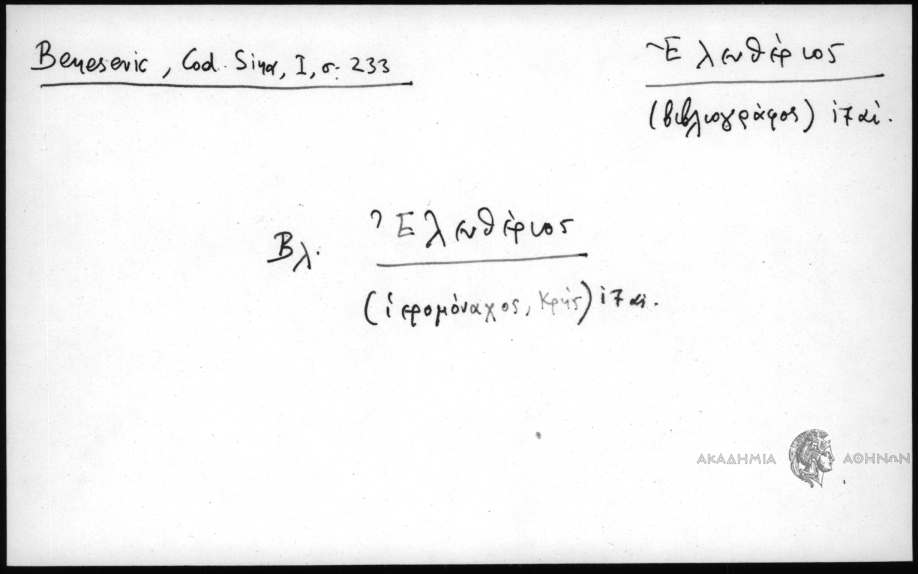 Benesevic, Cod. Sina, I, σ. 233
Ἐλευθέριος
(βιβλιογράφος) 17 αἰ.
Βλ. Ἐλευθέριος
(ἱερομόναχος, Κρής) 17 αἰ.
ΑΚΑΔΗΜΙΑ ΑΘΗΝΩΝ